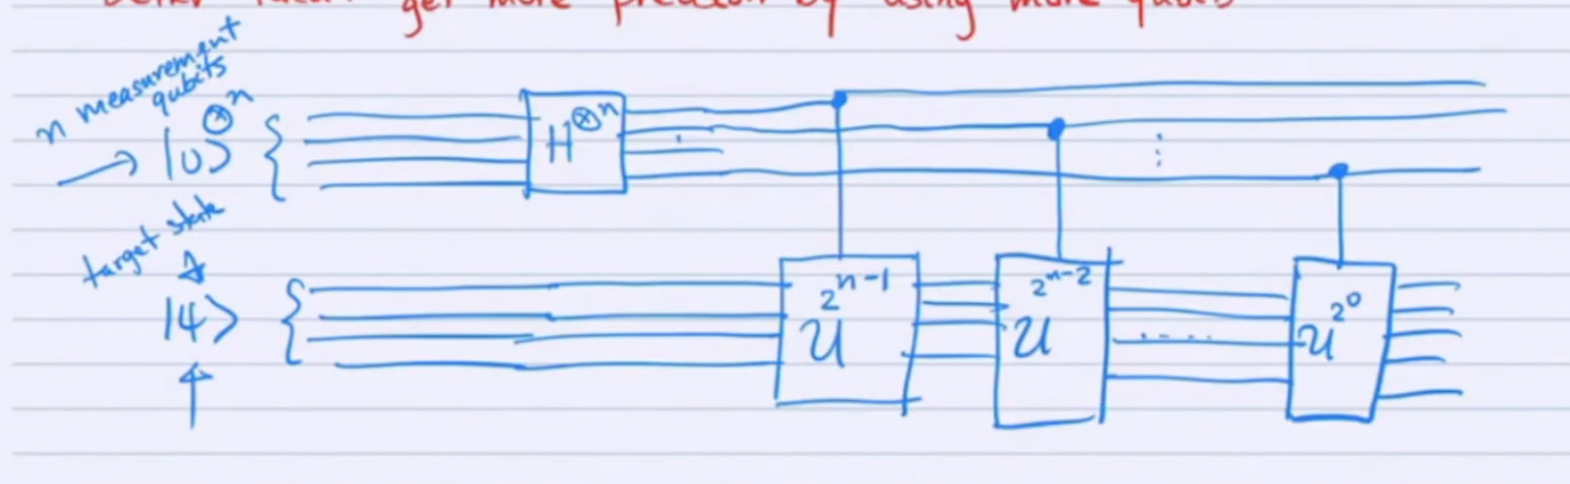 better idea: get more precision by using more qubits
n measurement
qubits
|0⟩^⊗n
H^⊗n
target state
|ψ⟩
U^2^n-1
U^2^n-2
.....
U^2^0